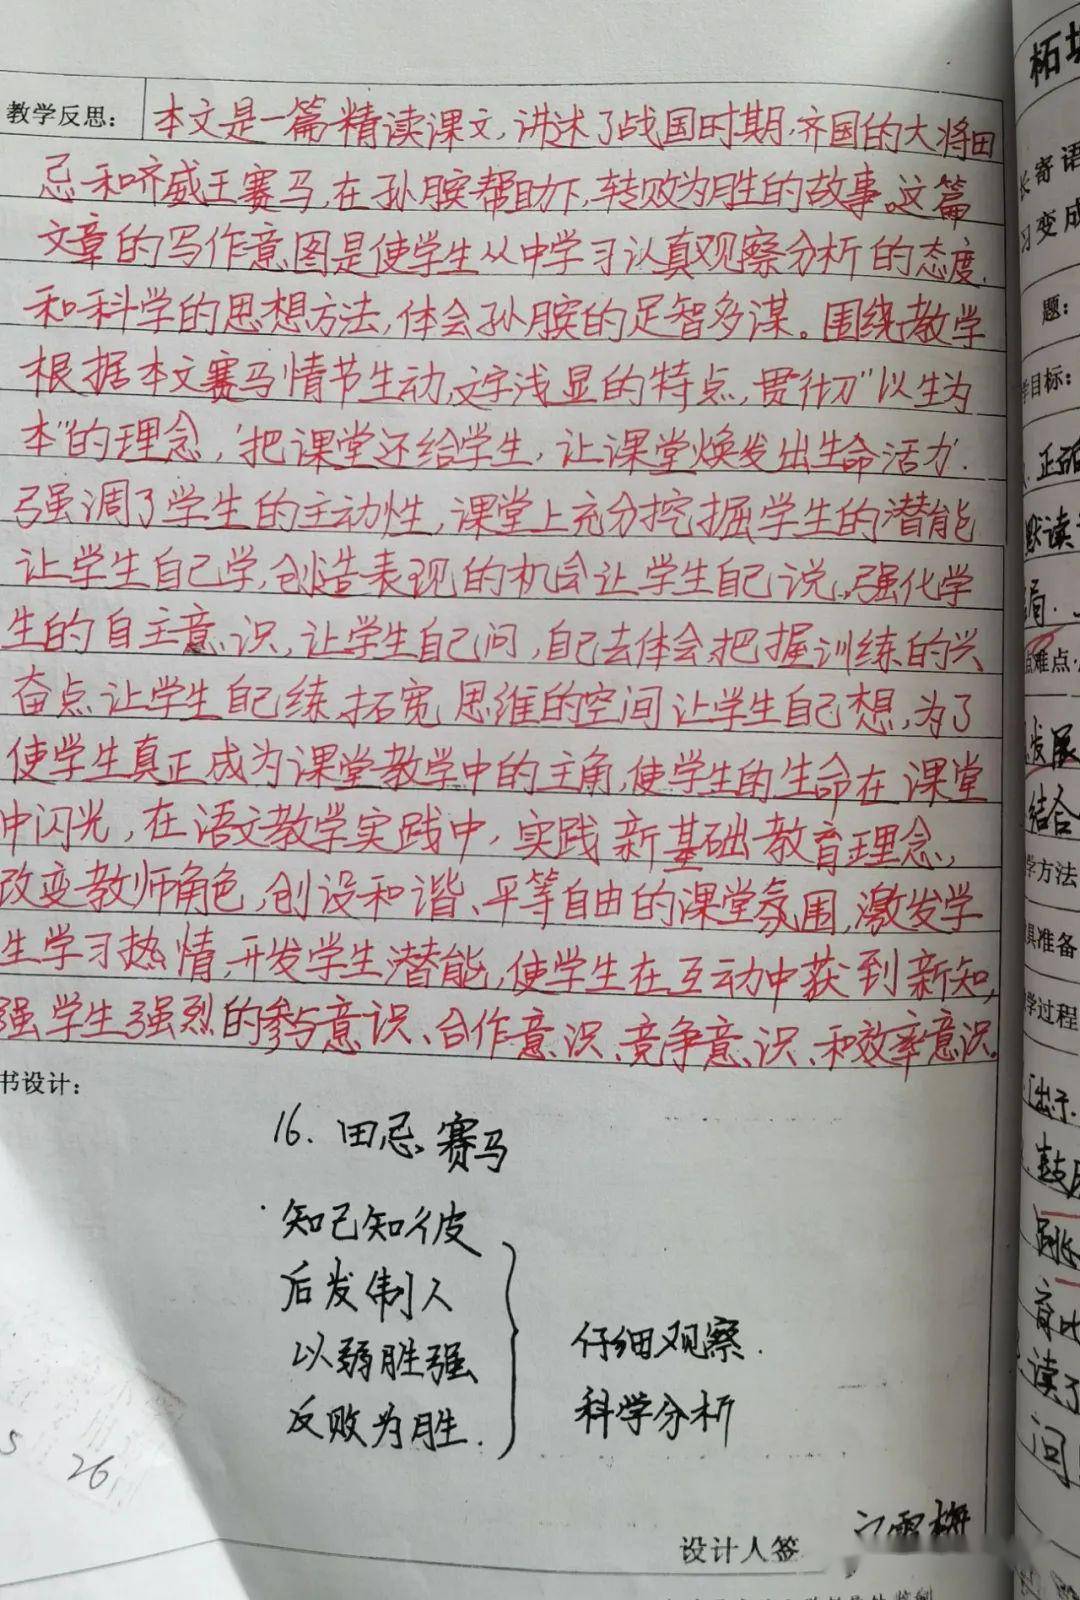 教学反思：本文是一篇精读课文，讲述了战国时期，齐国的大将田
忌和齐威王赛马，在孙膑帮助下，转败为胜的故事。这篇
文章的写作意图是使学生从中学习认真观察分析的态度，
和科学的思想方法，体会孙膑的足智多谋。围绕教学
根据本文赛马情节生动，文字浅显的特点，贯彻“以生为
本”的理念，把课堂还给学生，让课堂焕发出生命活力.
强调了学生的主动性，课堂上充分挖掘学生的潜能
让学生自己学，创造表现的机会让学生自己说，强化学
生的自主意识，让学生自己问，自己去体会，把握训练的兴
奋点让学生自己练，拓宽思维的空间让学生自己想，为了
使学生真正成为课堂教学中的主角，使学生的生命在课堂
中闪光，在语文教学实践中，实践新基础教育理念，
改变教师角色，创设和谐、平等自由的课堂氛围，激发学
生学习热情，开发学生潜能，使学生在互动中获到新知，
强学生强烈的参与意识、合作意识、竞争意识、和效率意识。
书设计：
16. 田忌赛马
知己知彼
后发制人
以弱胜强
反败为胜.
仔细观察.
科学分析
26
设计人签
长寄语
习变成
题：
学目标：
正确
默读
难点
发展
结合
学方法
具准备
学过程
读了
问